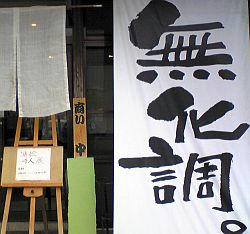 無化調。
商い中